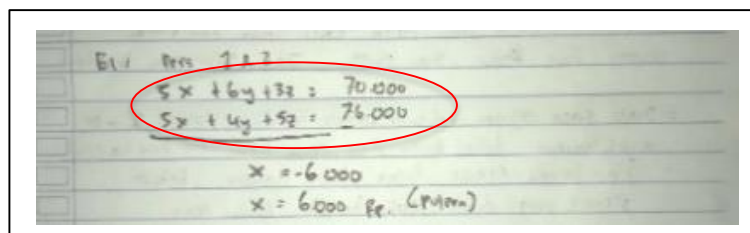 El : Pers 1 & 2
5x + 6y + 3z = 70.000
5x + 4y + 5z = 76.000
x = -6000
x = 6000 Rp.